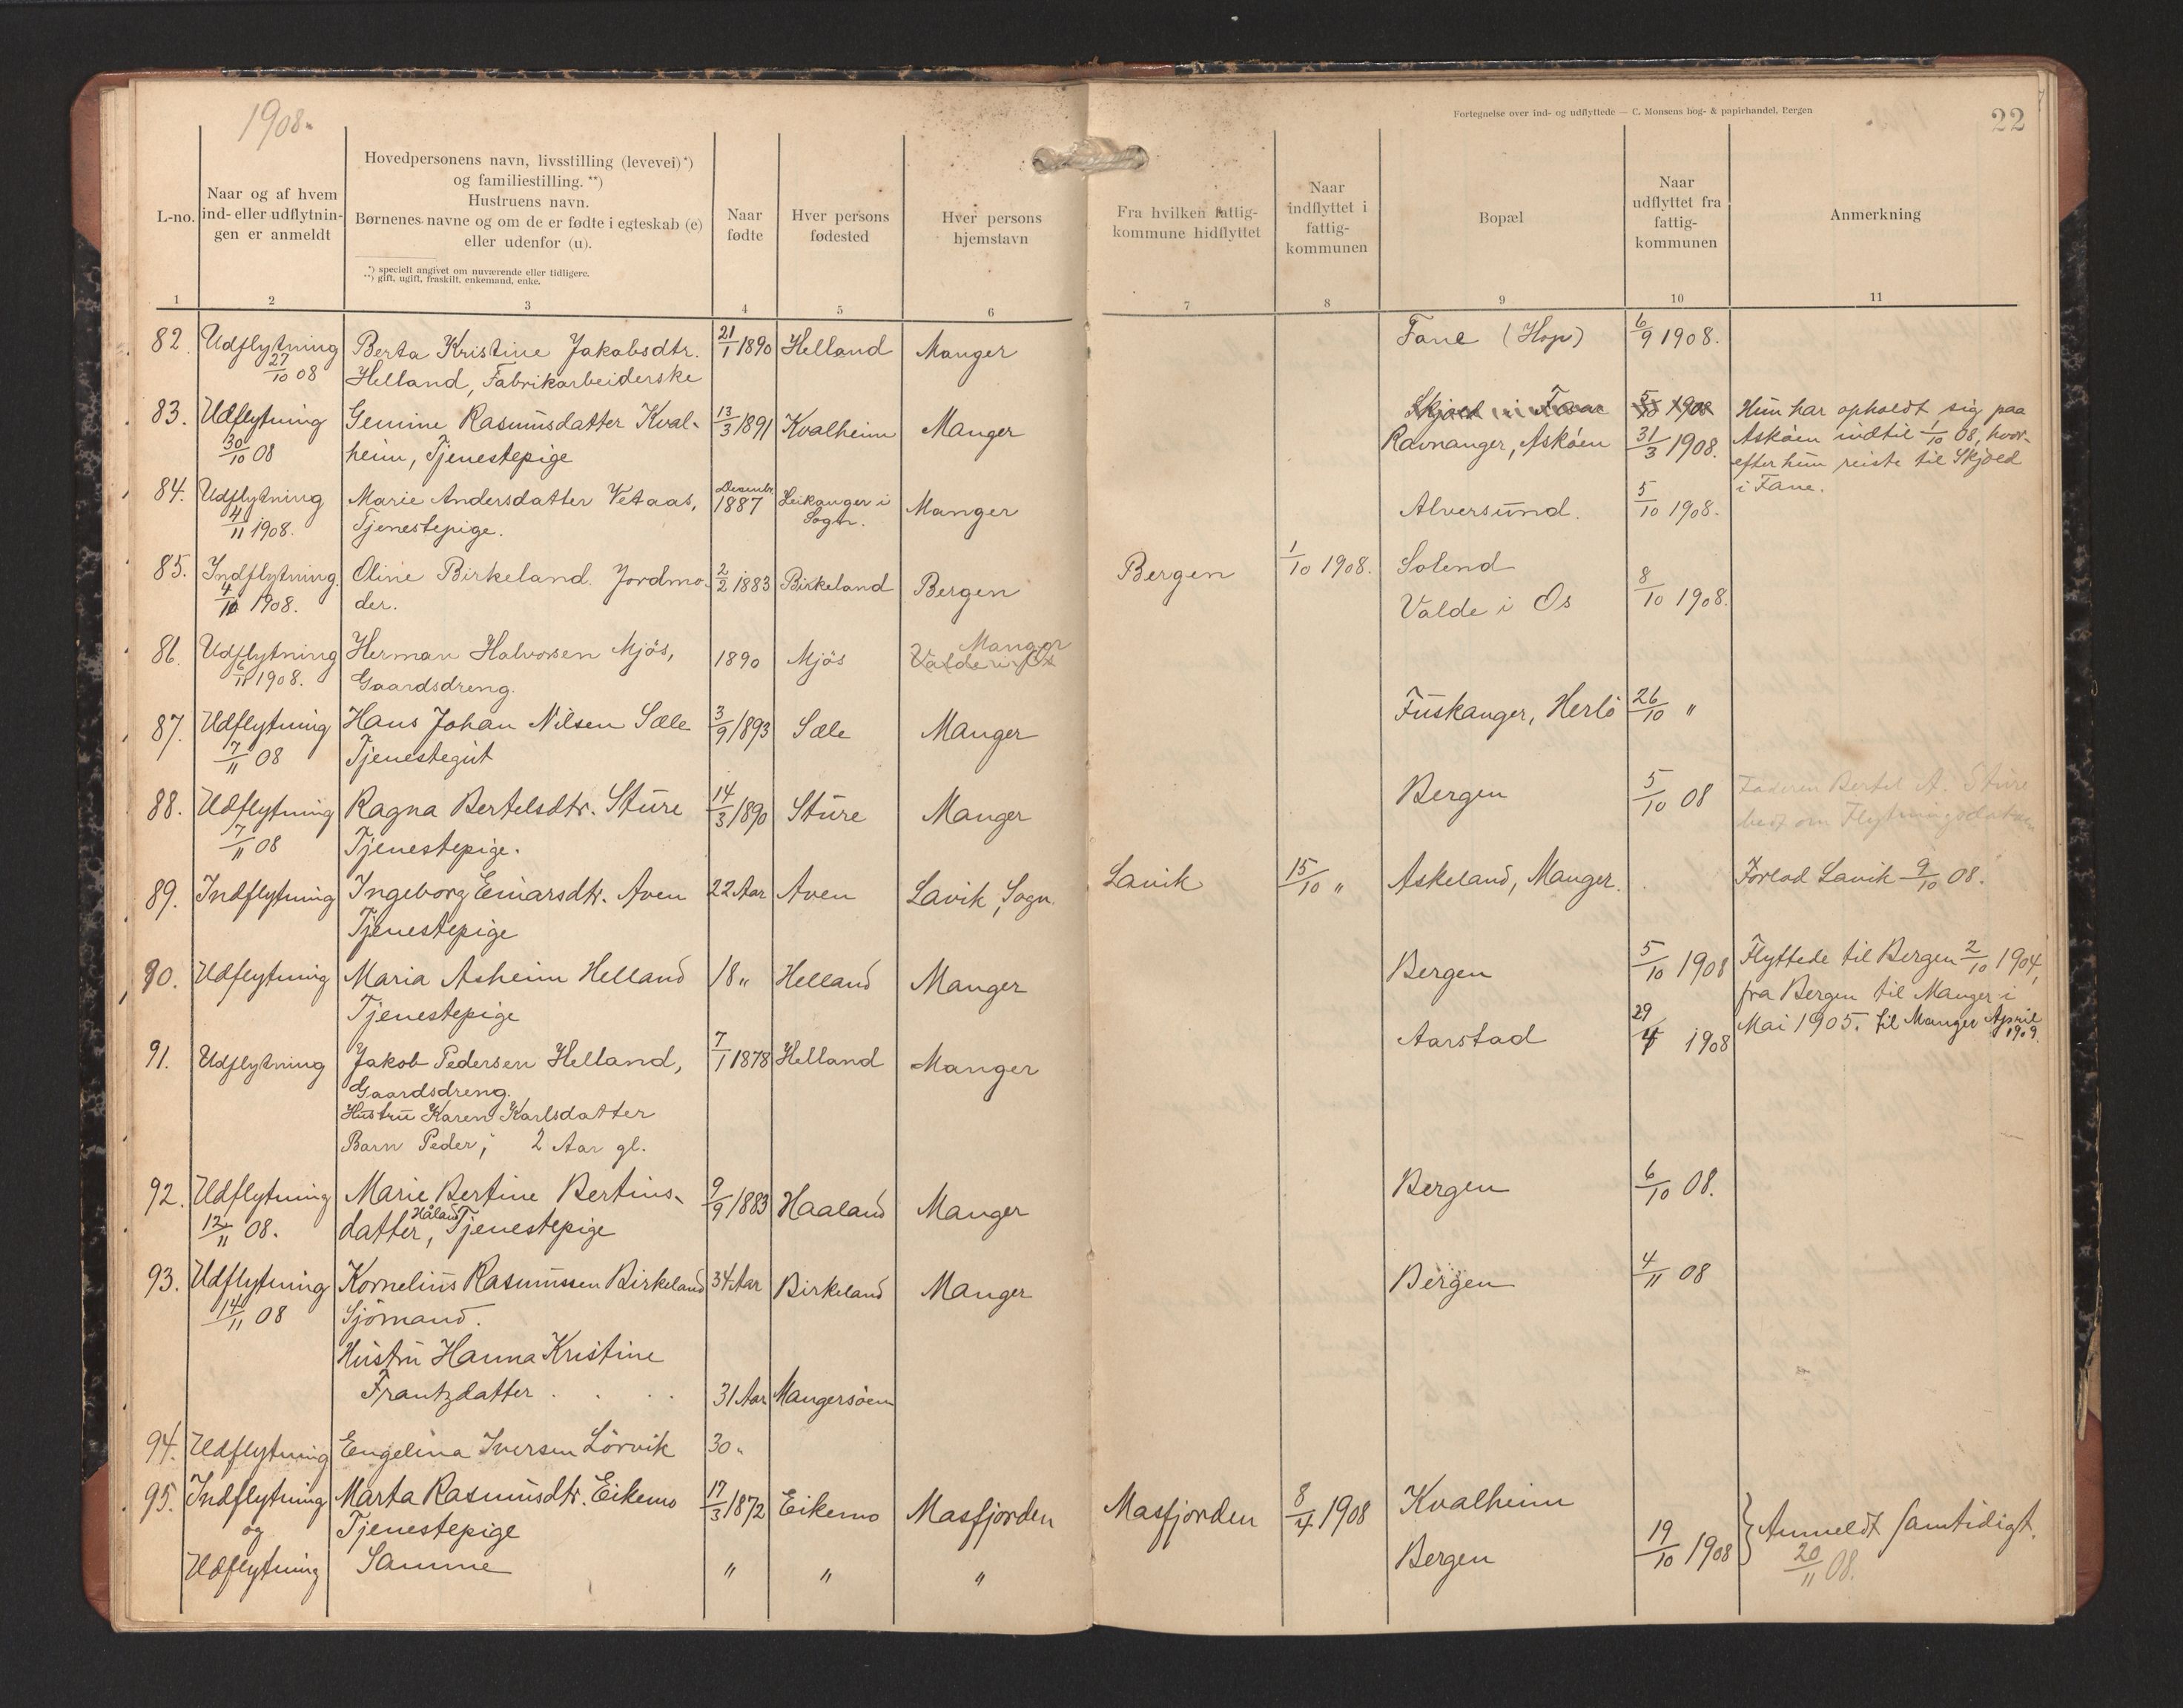 1908.
Fortegnelse over ind- og udflyttede — C. Monsens bog- & papirhandel, Bergen
22
L-no.
Naar og af hvem
ind- eller udflytnin-
gen er anmeldt
Hovedpersonens navn, livsstilling (levevei)*)
og familiestilling. **)
Hustruens navn.
Børnenes navne og om de er fødte i egteskab (e)
eller udenfor (u).
*) specielt angivet om nuværende eller tidligere.
**) gift, ugift, fraskilt, enkemand, enke.
Naar
fødte
Hver persons
fødested
Hver persons
hjemstavn
Fra hvilken fattig-
kommune hidflyttet
Naar
indflyttet i
fattig-
kommunen
Bopæl
Naar
udflyttet fra
fattig-
kommunen
Anmerkning
1 2 3 4 5 6 7 8 9 10 11
82. Udflytning Berta Kristine Jakobsdtr. 21/1 1890 Helland Manger Fane (Hop) 6/9 1908.
27/10 08 Helland, Fabrikarbeiderske
83. Udflytning Gemine Rasmusdatter Kval- 13/3 1891 Kvalheim Manger Skjold i Fane 5/10 1908 Hun har opholdt sig paa
30/10 08 heim, Tjenestepige Ravnanger, Askøen 31/3 1908. Askøen indtil 1/10 08, hvor-
efter hun reiste til Skjold
i Fane.
84. Udflytning Marie Andersdatter Vetaas, Decembr. 1887 Leikanger i Manger Alversund. 5/10 1908.
4/11 1908. Tjenestepige. Sogn.
85. Indflytning. Oline Birkeland. Jordmo- 2/2 1883 Birkeland Bergen Bergen 1/10 1908. Solend
4/10 1908. der. Valde i Os 8/10 1908.
86. Udflytning Herman Halvorsen Mjös, 1890 Mjös Valde i Os Manger
6/11 1908. Gaardsdreng.
87. Udflytning Hans Johan Nilsen Sæle 3/9 1893 Sæle Manger Fuskanger, Herlö 26/10 "
7/11 08 Tjenestegut
88. Udflytning Ragna Bertelsdtr. Sture 14/3 1890 Sture Manger Bergen 5/10 08 Faderen Bertel A. Sture
7/11 08 Tjenestepige. om Flytningsdatum
89. Indflytning Ingeborg Einarsdtr. Aven 22 Aar Aven Lavik, Sogn. Lavik 15/10 " Askeland, Manger. Forlod Lavik 9/10 08.
Tjenestepige
90. Udflytning Maria Asheim Helland 18 " Helland Manger Bergen 5/10 1908 Flyttede til Bergen 2/10 1904,
Tjenestepige fra Bergen til Manger i
Mai 1905. til Manger April 1909.
91. Udflytning Jakob Pedersen Helland, 7/1 1878 Helland Manger Aarstad 29/4 1908
Gaardsdreng.
Hustru Karen Karlsdatter
Barn Peder; 2 Aar gl.
92. Udflytning Marie Bertine Bertins- 9/9 1883 Haaland Manger Bergen 6/10 08.
12/11 08. datter, Håland Tjenestepige
93. Udflytning Kornelius Rasmussen Birkeland 34 Aar Birkeland Manger Bergen 4/11 08
14/11 08 Sjömand.
Hustru Hanna Kristine
Frantzdatter . . . . 31 Aar Mangersöen
94. Udflytning Engelina Iversen Lörvik 30 "
95. Indflytning Marta Rasmusdtr. Eikemo 17/3 1872 Eikemo Masfjorden Masfjorden 8/4 1908 Kvalheim
og Tjenestepige } Anmeldt samtidigt.
Udflytning Samme " " " Bergen 19/10 1908 20/11 08.